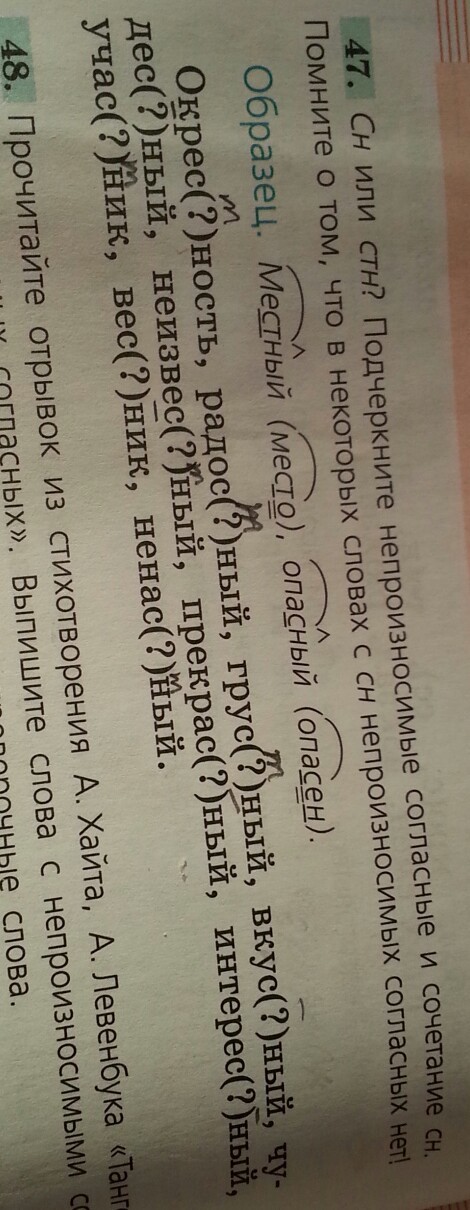 47. Сн или стн? Подчеркните непроизносимые согласные и сочетание сн.
Помните о том, что в некоторых словах с сн непроизносимых согласных нет!
Образец. Местный (место), опасный (опасен).
Окрес(?)ность, радос(?)ный, грус(?)ный, вкус(?)ный, чу-
дес(?)ный, неизвес(?)ный, прекрас(?)ный, интерес(?)ный,
учас(?)ник, вес(?)ник, ненас(?)ный.
48. Прочитайте отрывок из стихотворения А. Хайта, А. Левенбука «Танг
согласных». Выпишите слова с непроизносимыми со
слова.